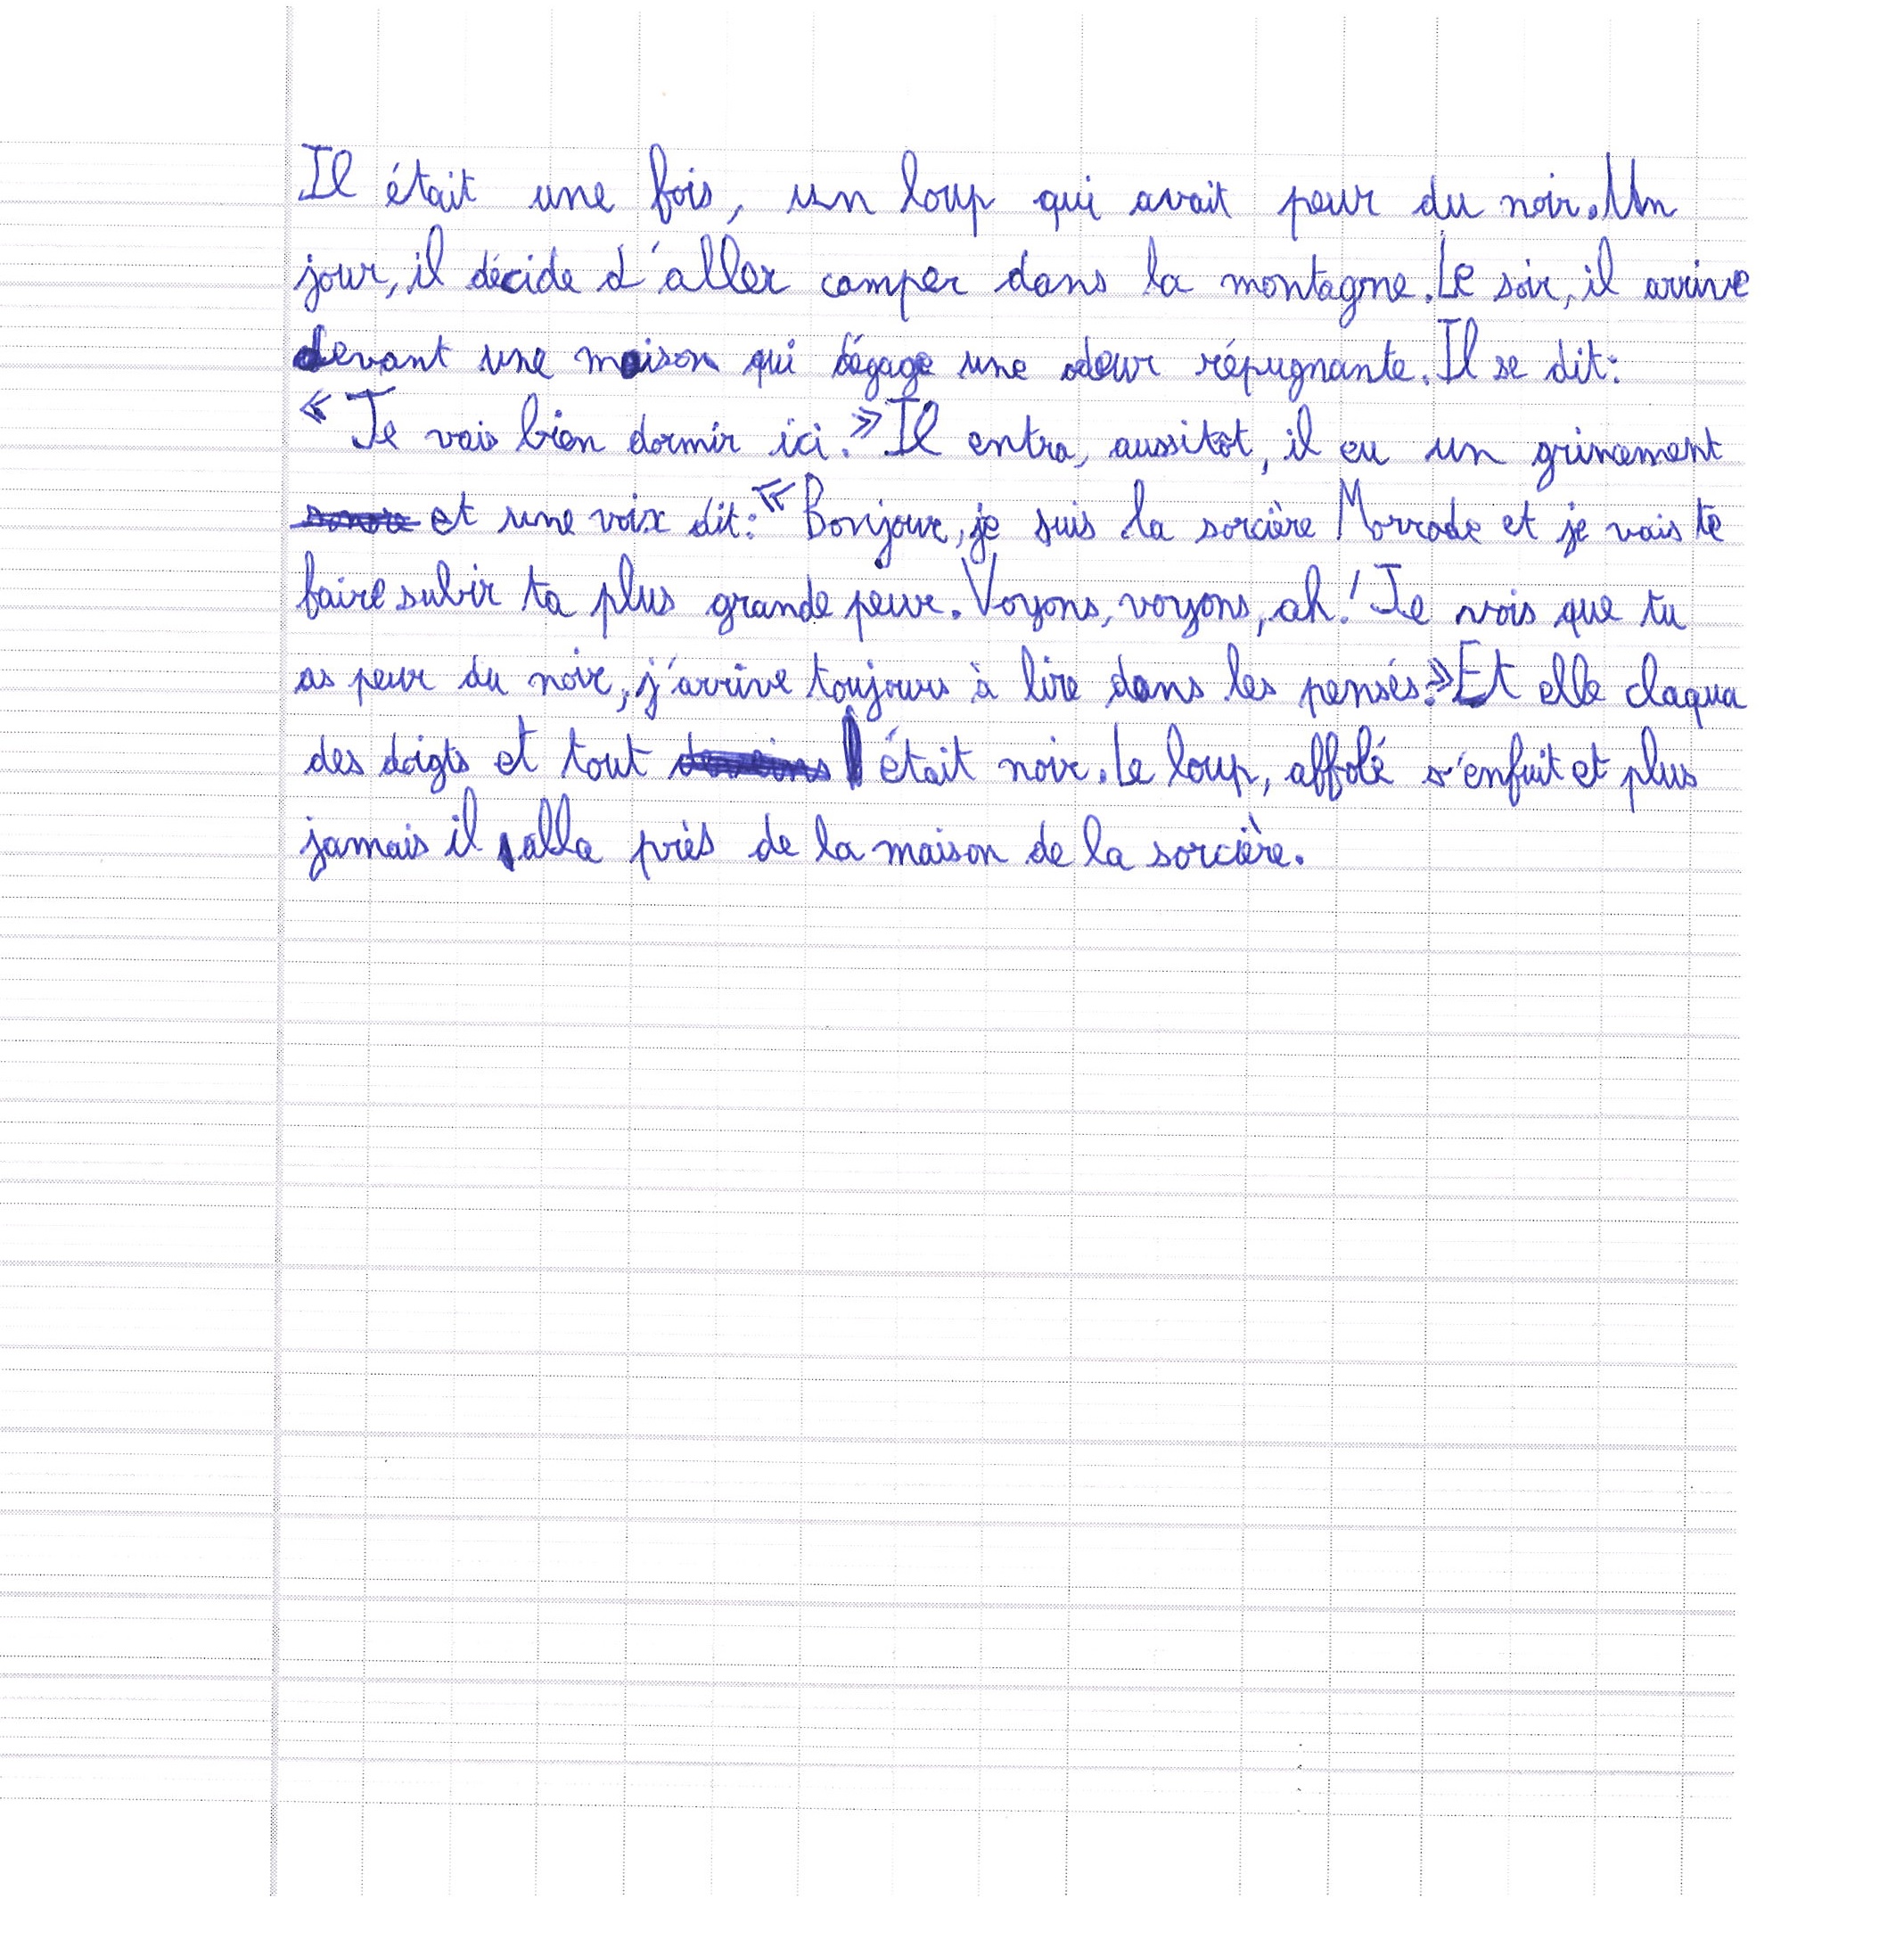 Il était une fois, un loup qui avait peur du noir. Un
jour, il décide d'aller camper dans la montagne. Le soir, il arrive
devant une maison qui dégage une odeur répugnante. Il se dit:
« Je vais bien dormir ici. » Il entra, aussitôt, il eu un grincement
et une voix dit: « Bonjour, je suis la sorcière Morrade et je vais te
faire subir ta plus grande peur. Voyons, voyons, ah! Je vois que tu
as peur du noir, j'arrive toujours à lire dans les pensés. » Et elle claqua
des doigts et tout était noir. Le loup, affolé s'enfuit et plus
jamais il alla près de la maison de la sorcière.